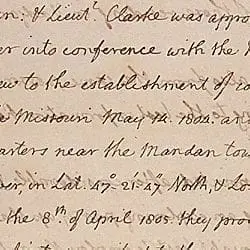 n. & Lieut. Clarke was appro
er into conference with the
ew to the establishment of co
e Missouri May 14. 1804. and
arters near the Mandan tow
ber, in Lat 47° 21' 47" North, & Lo
the 8th. of April 1805. they pro